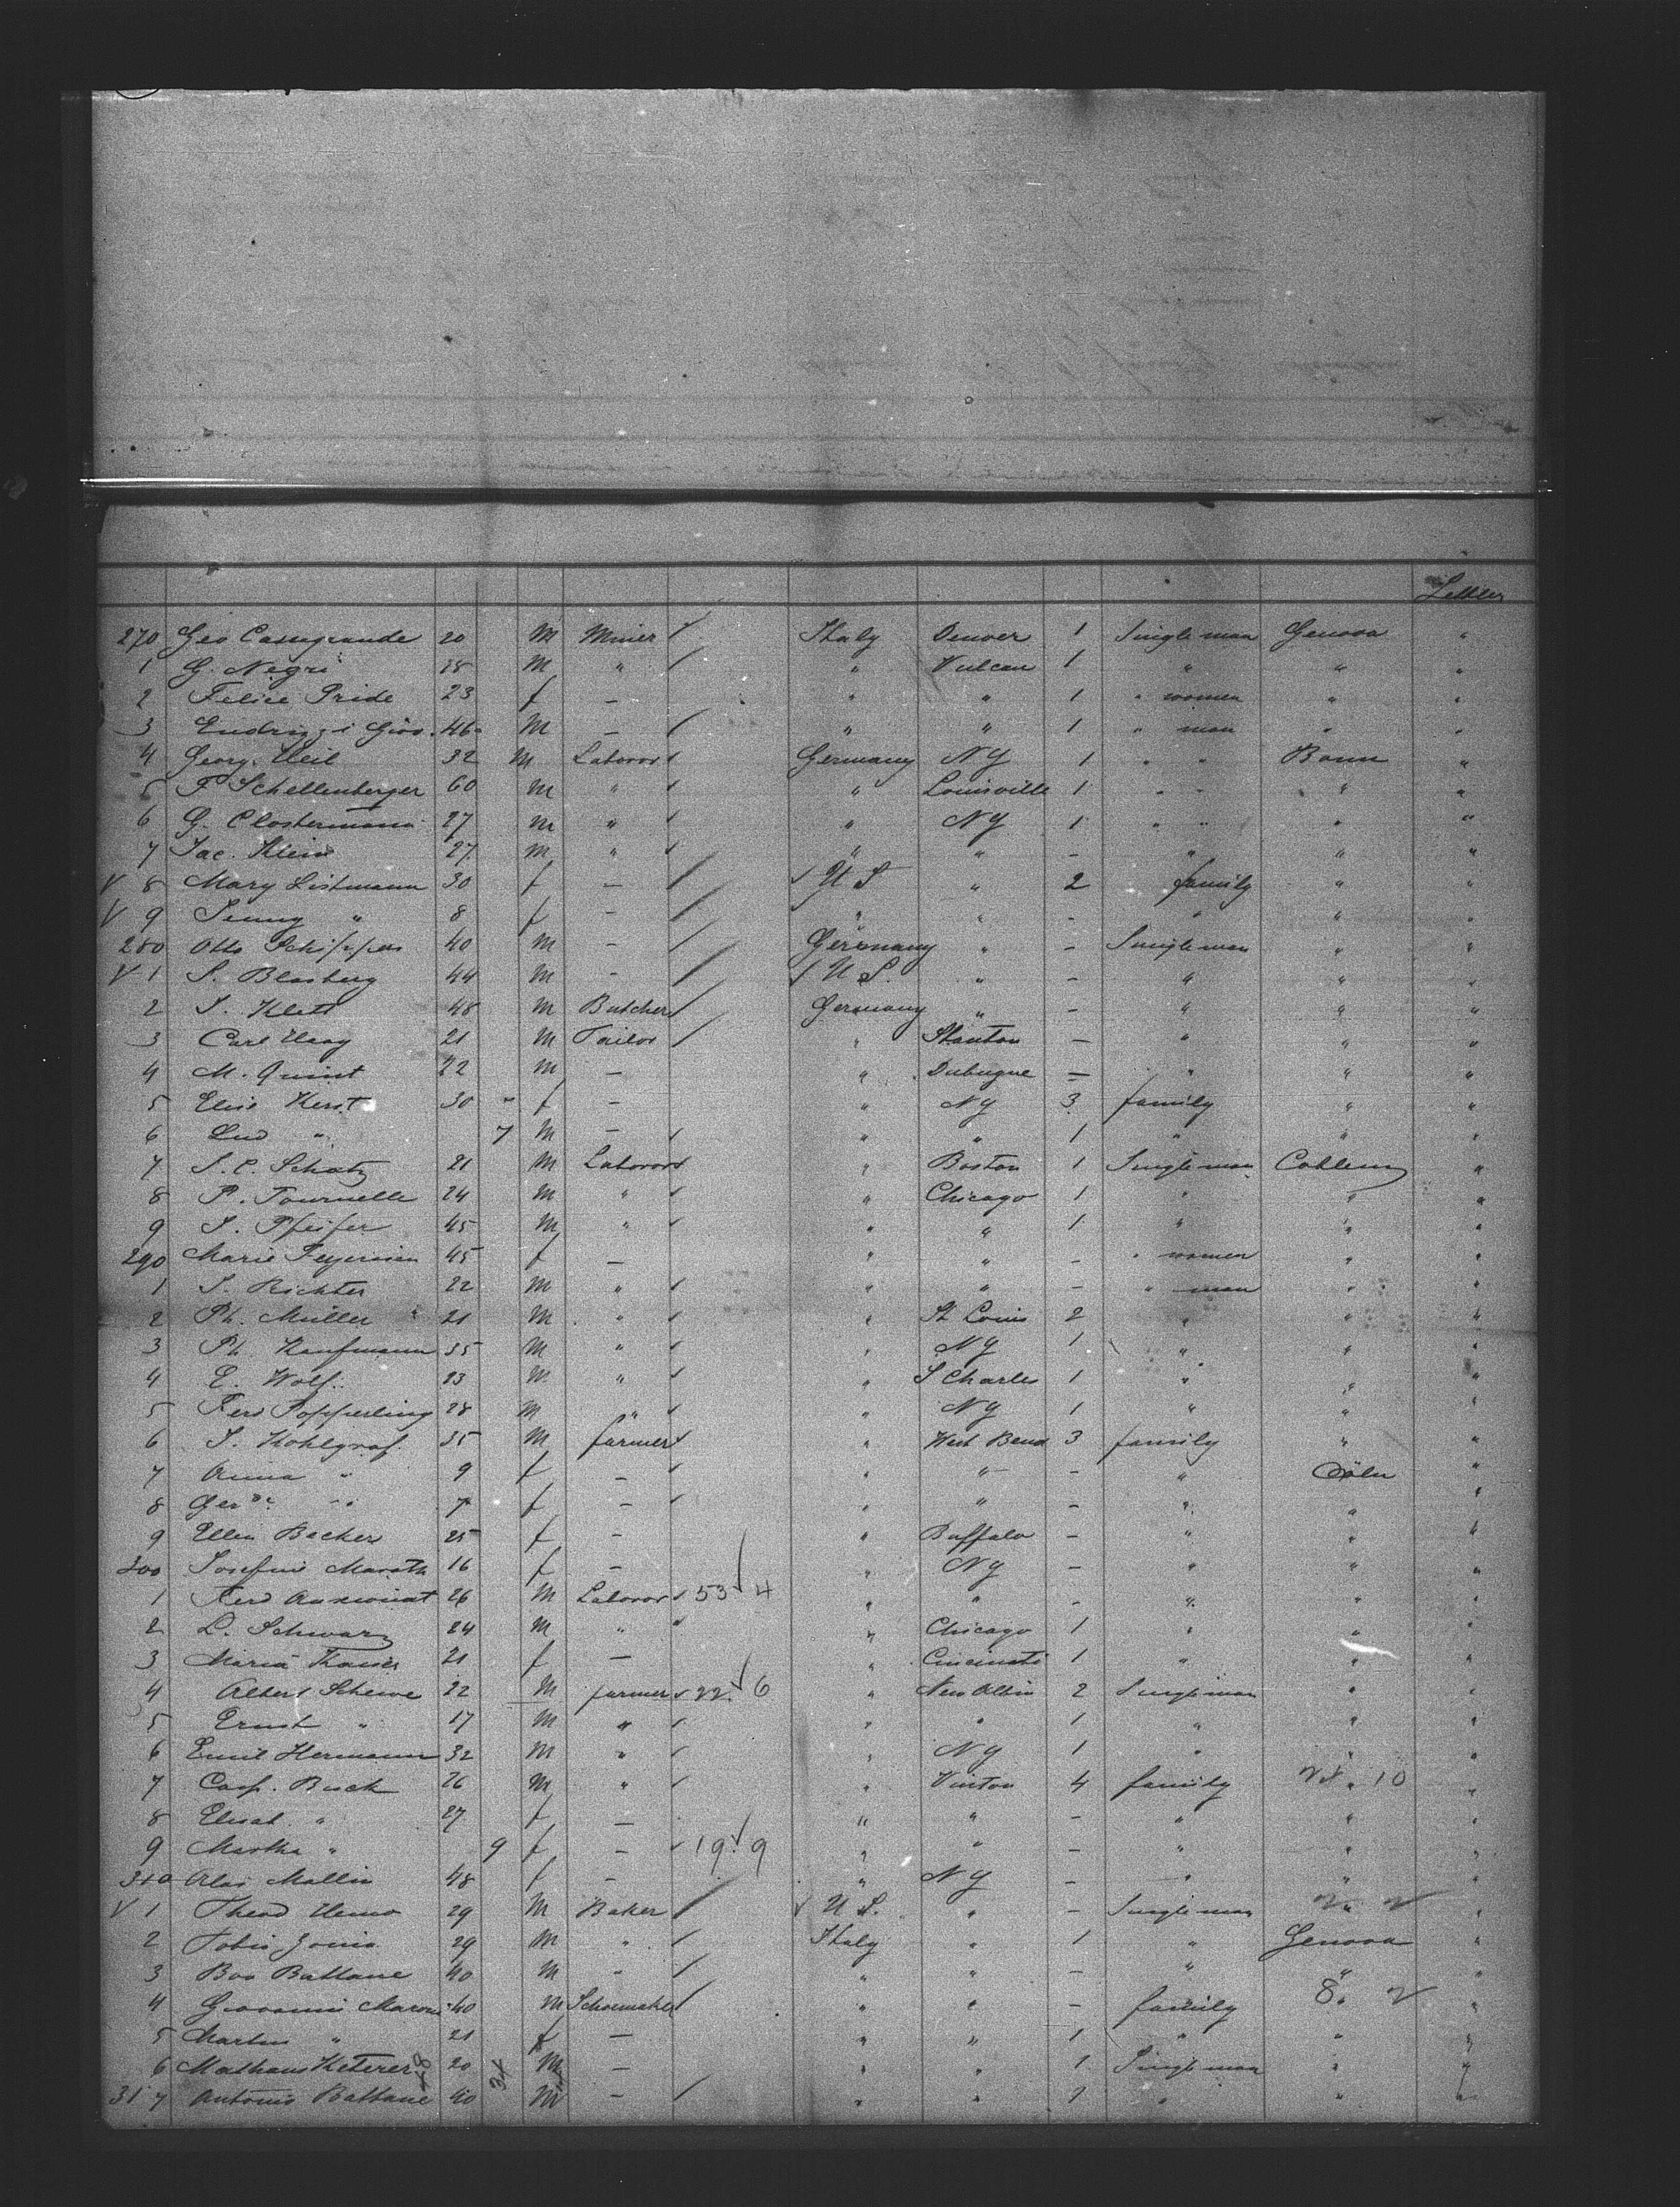 Settler
270 Geo Cassegrande 20 M Miner / Italy Denver 1 Single man Genova "
1 G. Negri M " / " Vulcan 1 " " "
2 Felice Pride 23 f — " " 1 " women " "
3 Endrizzi Giov. 46 M — / " " 1 " man " "
4 Georg. Heil 32 M Laboror / Germany NY 1 " " Bonn "
5 F Schellenberger 60 M " / " Louisville 1 " " " "
6 G. Clostermann 27 M " / " NY 1 " " " "
7 Jac. Klein 27 M " / " " — " " "
V 8 Mary Listmann 30 f — / √ U S " 2 family " "
V 9 Jenny " 8 f — / " " — " " "
280 Otto 40 M — / Germany " — Single man " "
V 1 S. Blasberg 44 M — / √ U S. " — " " "
2 J. Klett 48 M Butcher / Germany " — " " "
3 Carl Haag 21 M Tailor / " Stanton — " " "
4 M. Quint 22 M — " Dubuque — " " "
5 Elise Kerst 30 " f — " NY 3 family " "
6 Lud " 7 M — / " " 1 " " "
7 J. C. Schatz 21 M Laboror / " Boston 1 Single man Coblenz "
8 P. Tournelle 24 M " / " Chicago 1 " " "
9 J. Pfeifer 45 M " / " " 1 " " "
290 Marie 45 f — " " — " women " "
1 J. Richter 22 M " / " " — " man " "
2 Ph. Müller 21 M " / " St Louis 2 " " "
3 Ph Kaufmann 35 M " / " NY 1 " " "
4 E. Wolf. 23 M " / " S Charles 1 " " "
5 Ferd Popperling 28 M " / " NY 1 " " "
6 J. Kohlgraf 35 M farmer / " West Bend 3 family " "
7 Anna " 9 f — / " " — " Cöln "
8 Gerde " 7 f — / " " — " " "
9 Ellen Becker 25 f — " Buffalo — " " "
300 Josefine Marath 16 f — " NY — " " "
1 Ferd 26 M Laboror / 53 √ 4 " " — " " "
2 L. Schwarz 24 M " " " Chicago 1 " " "
3 Maria Kaiser 21 f — " Cincinati 1 " " "
4 Albert Schewe 22 M farmer / 22 √ 6 " New Albin 2 Single man " "
5 Ernst " 17 M " / " " 1 " " "
6 Emil Hermann 32 M " / " NY 1 " " "
7 Casp. Busch 26 M " / " Vinton 4 family " 10 "
8 Elisab. " 27 f — " " — " " "
9 Martha " 9 f — / 19 √ 9 " " — " " "
310 Mallin 48 f — " NY — " " "
V 1 Theod 29 M Baker / √ U S. " — Single man " "
2 Tobis Zonis 29 M " / Italy " 1 " Genova "
3 Bos Battane 40 M " / " " — " " "
4 Giovanni Maroni 40 M Schoemaker / " " — family 8 " "
5 Martin " 21 f — " " 1 " " "
6 Mathaus Keterer 20 M — " " 1 Single man " "
317 Antonio Battane 40 M — / " " 1 " " "